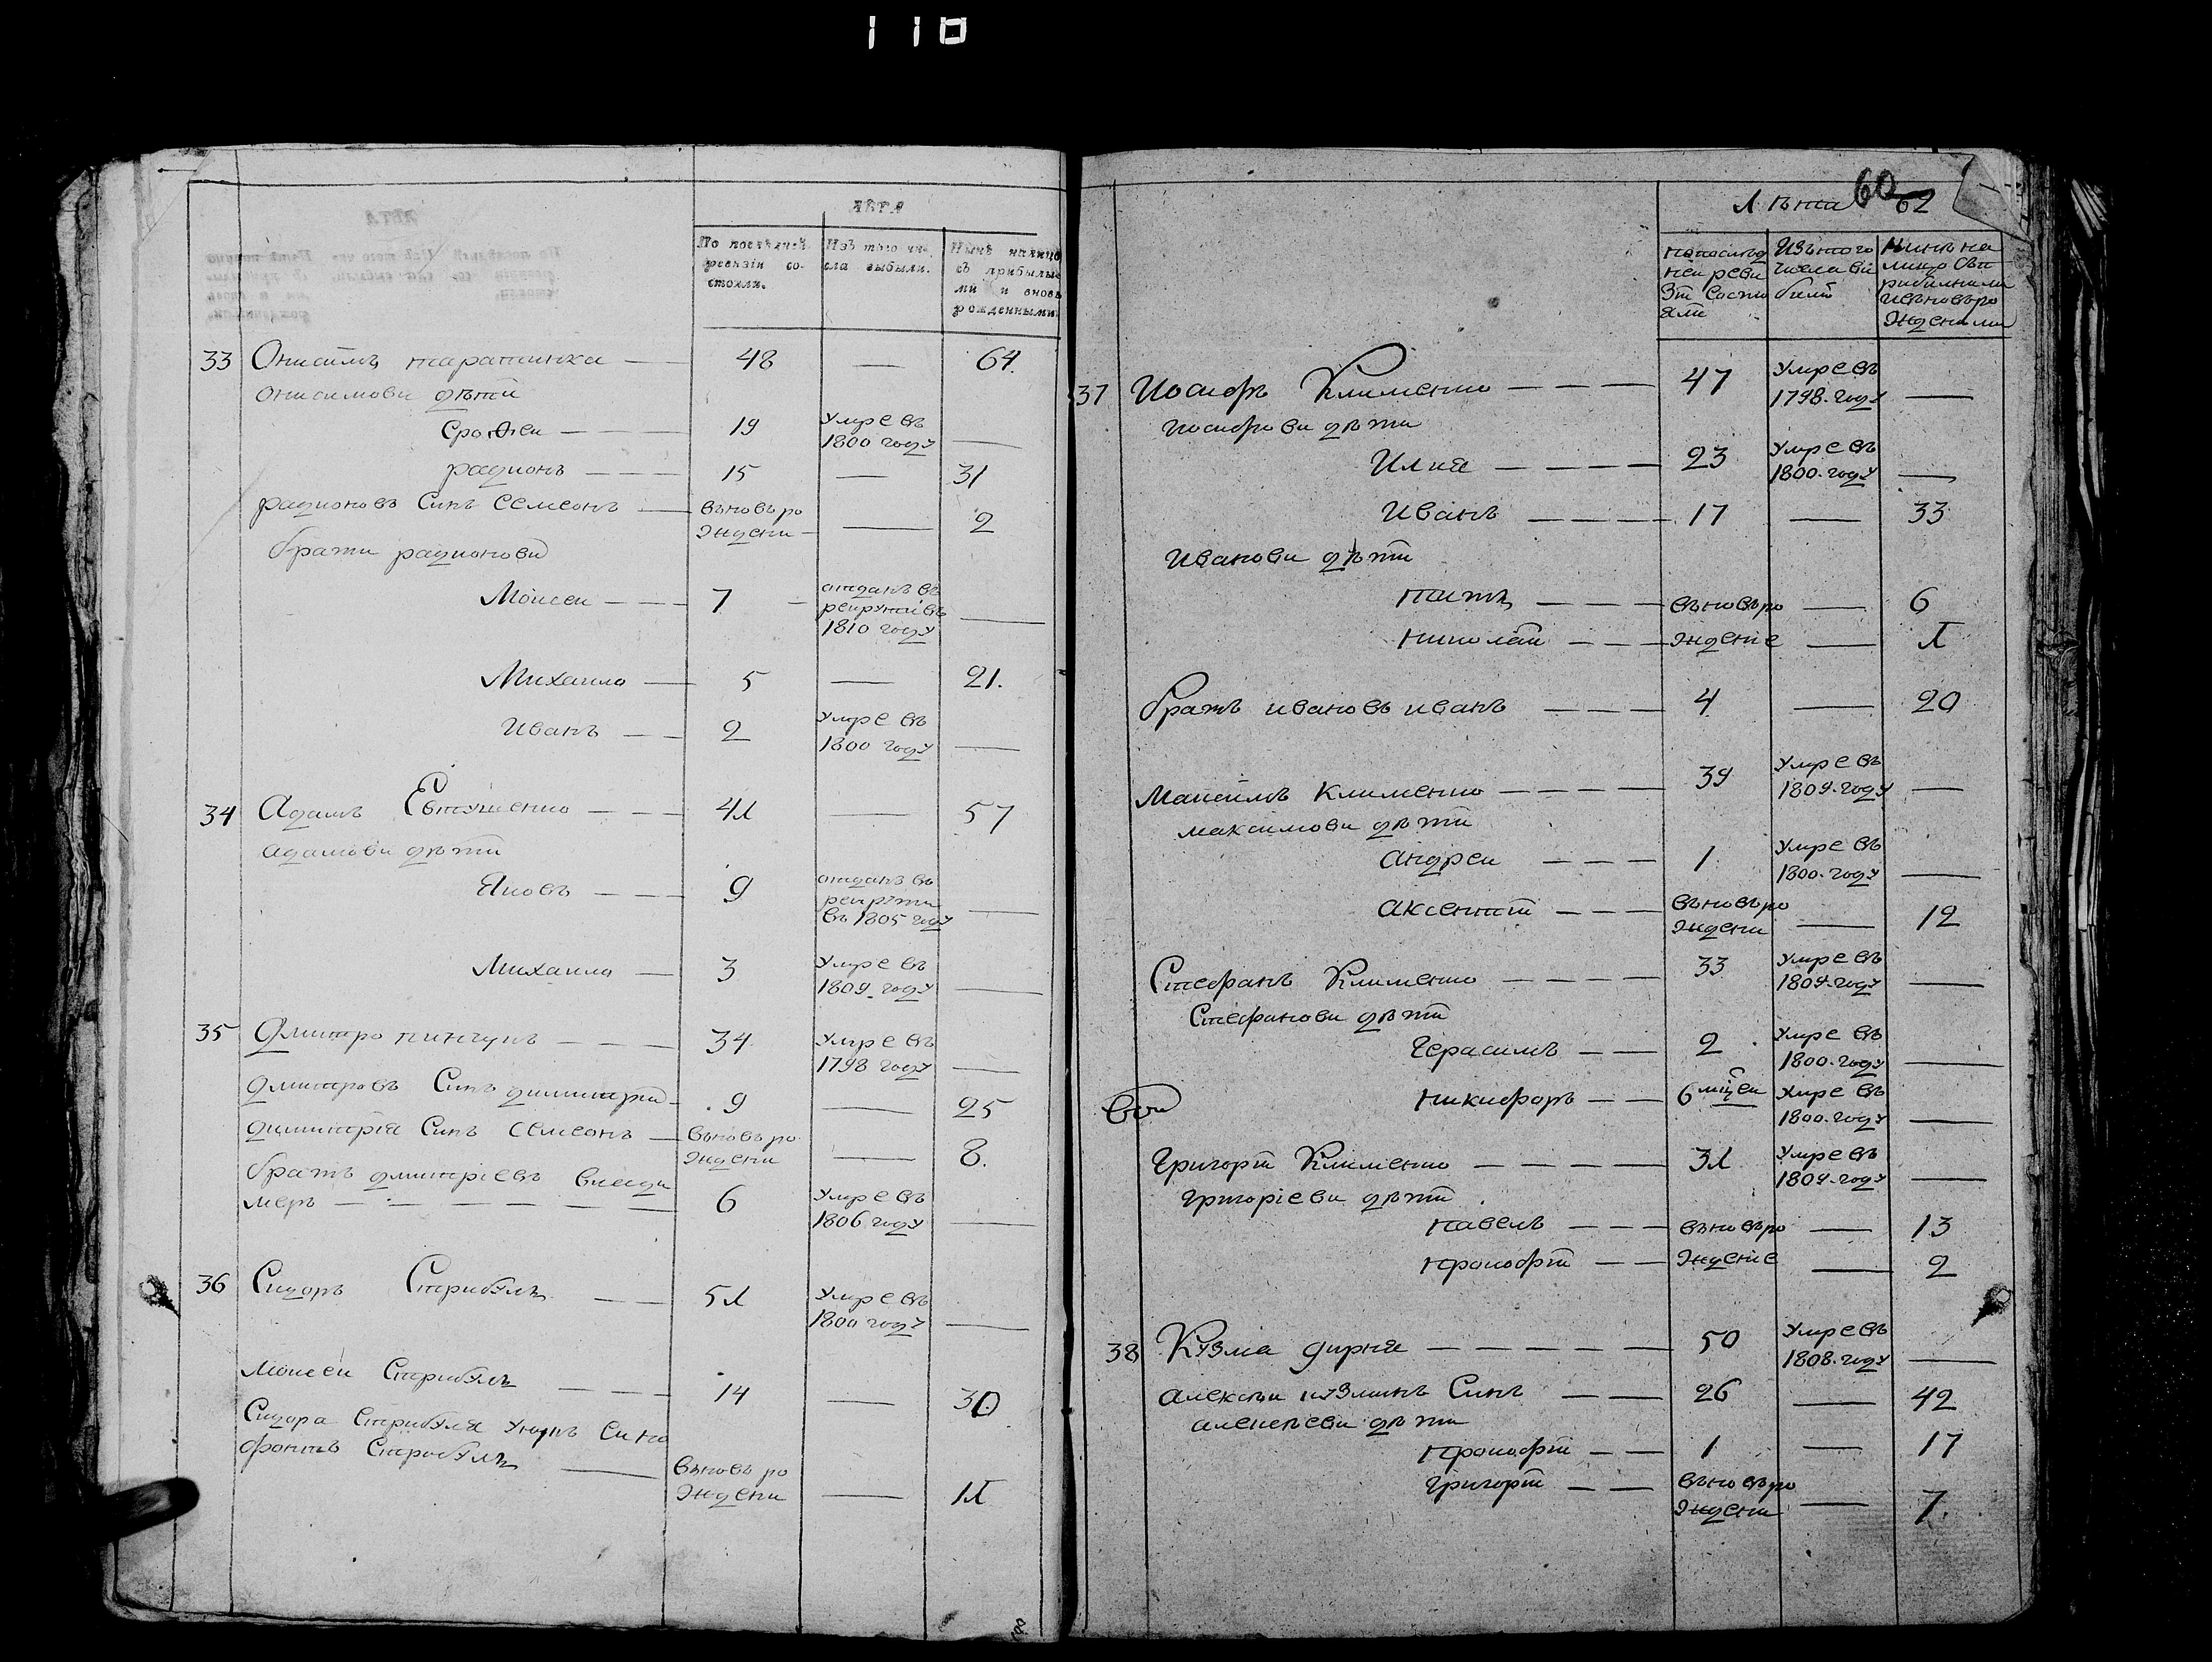 116
ЛѢТА
По послѣдней ревизіи состояли.
Изъ того числа выбыли.
Нынѣ налицо съ прибылыми и вновь рожденными.
33 Онисимъ таратинка — 48 — 64.
Онисимови дѣти
19 Умре въ
1800 году —
радионъ — 15 — 31
радионовъ Синъ Семеонъ — вѣновъ ро
ждени — — 2
брати радионови
Моисеи — 7 — отданъ въ
рекрути въ
1810 году —
Михаило — 5 — 21.
Иванъ — 2 Умре въ
1800 году —
34 Адамъ Евтушенко — 41 — 57
адамови дѣти
Яковъ — 9 отданъ въ
рекрути
въ 1805 году —
Михаило — 3 Умре въ
1809 году —
35 Дмитро пинчукъ — 34 Умре въ
1798 году —
дмитровъ Синъ димитрій — 9 — 25
димитрія Синъ Семеонъ — вѣновъ ро
ждени — 8.
братъ дмитріевъ
меръ — 6 Умре въ
1806 году —
36 Сидоръ Стрибуль — 51 Умре въ
1800 году —
Моисеи Стрибуль — 14 — 30
Сидора Стрибуля унукъ
Стрибуль — вѣновъ ро
ждени — 11
60 62
Лѣта
попослѣд
ней реви
зіи состо
яли
Изътого
числа ви
били
Нинѣ на
лицо съп
рибилими
ивѣновъро
ждеными
37 Иосифъ Клименко — 47 Умре въ
1798. году —
Иосифови дѣти
Илия — 23 Умре въ
1800. году —
Иванъ — 17 — 33
Иванови дѣти
вѣновъро — 6
николай — ждение — 1
братъ ивановъ иванъ — 4 — 20
Максимъ Клименко — 39 Умре въ
1809. году —
максимови дѣти
андреи — 1 Умре въ
1800. году —
аксентій — вѣновъро
ждени — 12
Стефанъ Клименко — 33 Умре въ
1809. году —
Стефанови дѣти
Герасимъ — 2 Умре въ
1800. году —
никифоръ — 6 мцеи Умре въ
1800. году —
Григорій Клименко — 31 Умре въ
1809. году —
григоріеви дѣти
павелъ — вѣновъро — 13
прокофій — ждение — 2
38 Кузма дирия — 50 Умре въ
1808. году —
алексеи кузминъ Синъ — 26 — 42
алексѣеви дѣти
прокофій — 1 — 17
григорій — вѣновъро
ждени — 7.